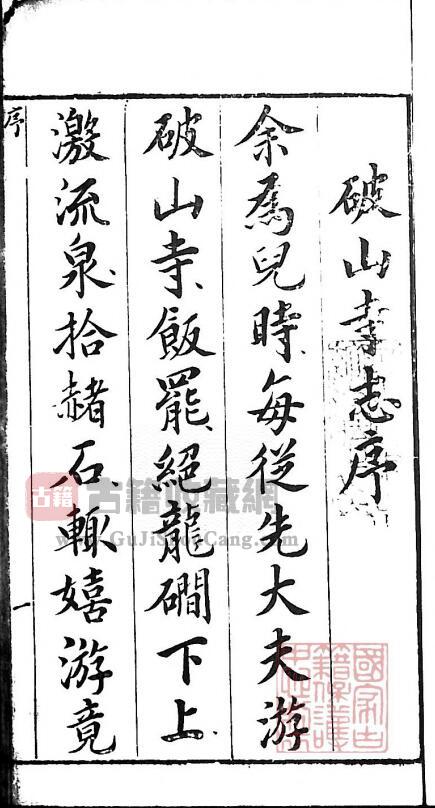 破山寺志序
余爲兒時每從先大夫游
破山寺飯罷絕龍磵下上
激流泉拾赭石輒嬉游竟
序
一
古籍
古籍收藏網
www.GuJiShouCang.com